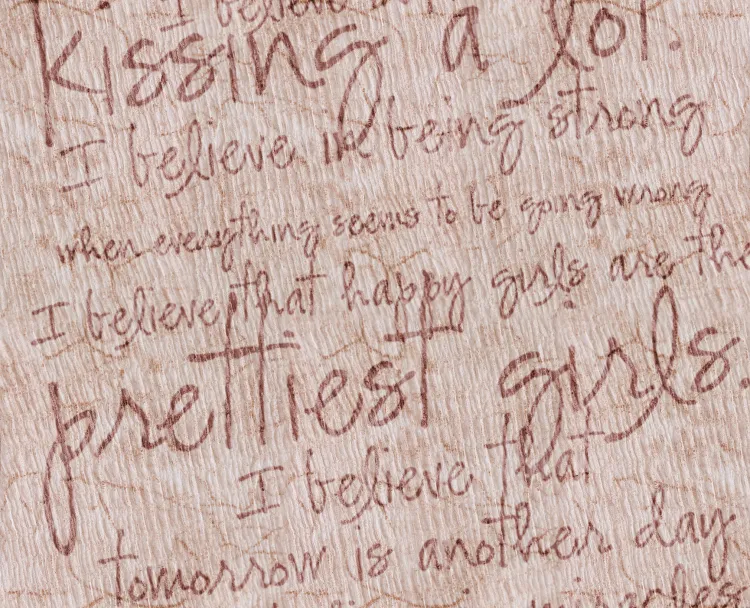 I believe in
kissing a lot.
I believe in being strong
when everything seems to be going wrong
I believe that happy girls are the
prettiest girls.
I believe that
tomorrow is another day